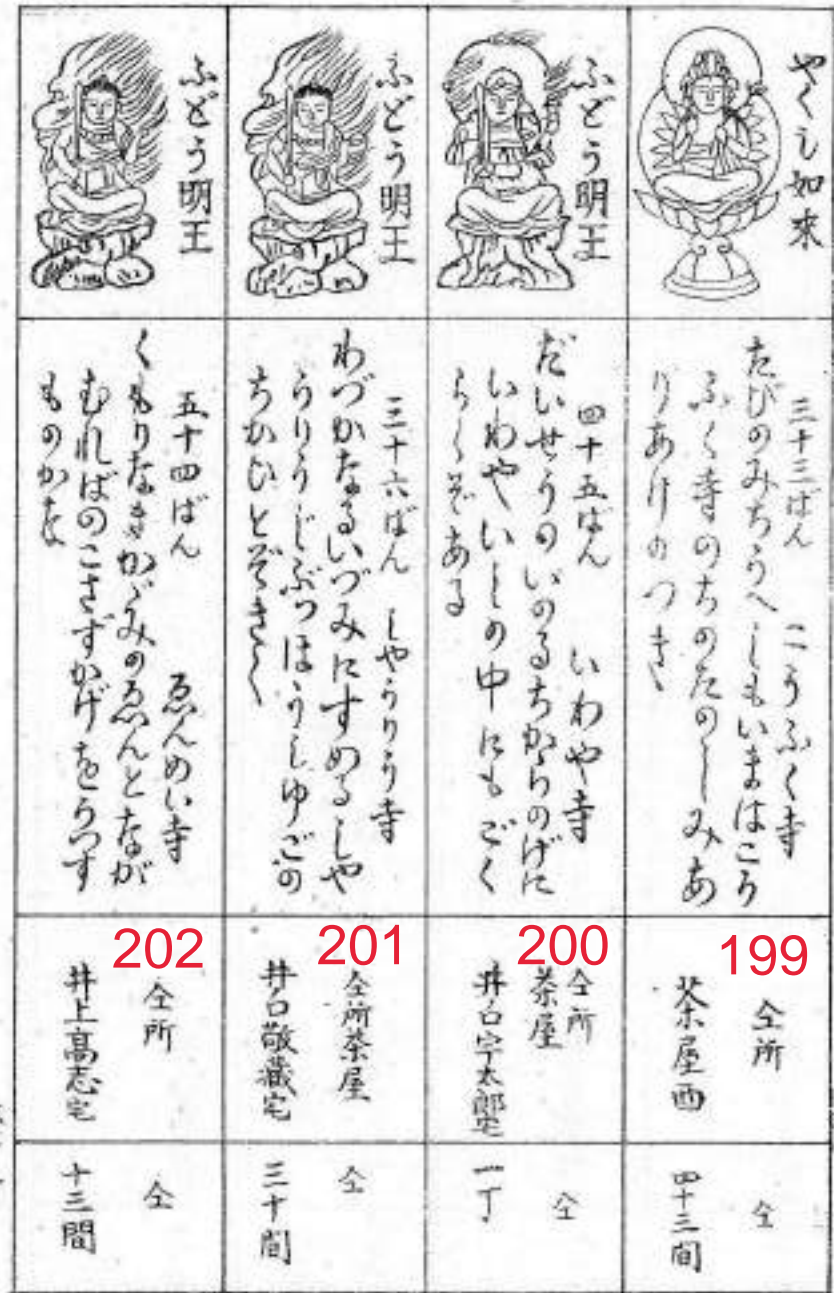 やくし如來
三十三ばん こうふく寺
たびのみちうへしもいまはこう
ふく寺のちのたのしみあ
りあけのつき
199
仝所
茶屋西
仝
四十三間
ふどう明王
四十五ばん いわや寺
だいせうのいのるちからのげに
いわやいしの中にもごく
らくぞある
200
仝所
茶屋
井口宇太郎宅
仝
一丁
ふどう明王
三十六ばん しやうりう寺
わづかなるいづみにすめるしや
うりうじぶつほうしゆごの
ちかひとぞきく
201
仝所茶屋
井口敬藏宅
仝
三十間
ふどう明王
五十四ばん ゑんめい寺
くもりなきかゞみのゑんとなが
むればのこさずかげをうつす
ものかな
202
仝所
井上高志宅
仝
十三間